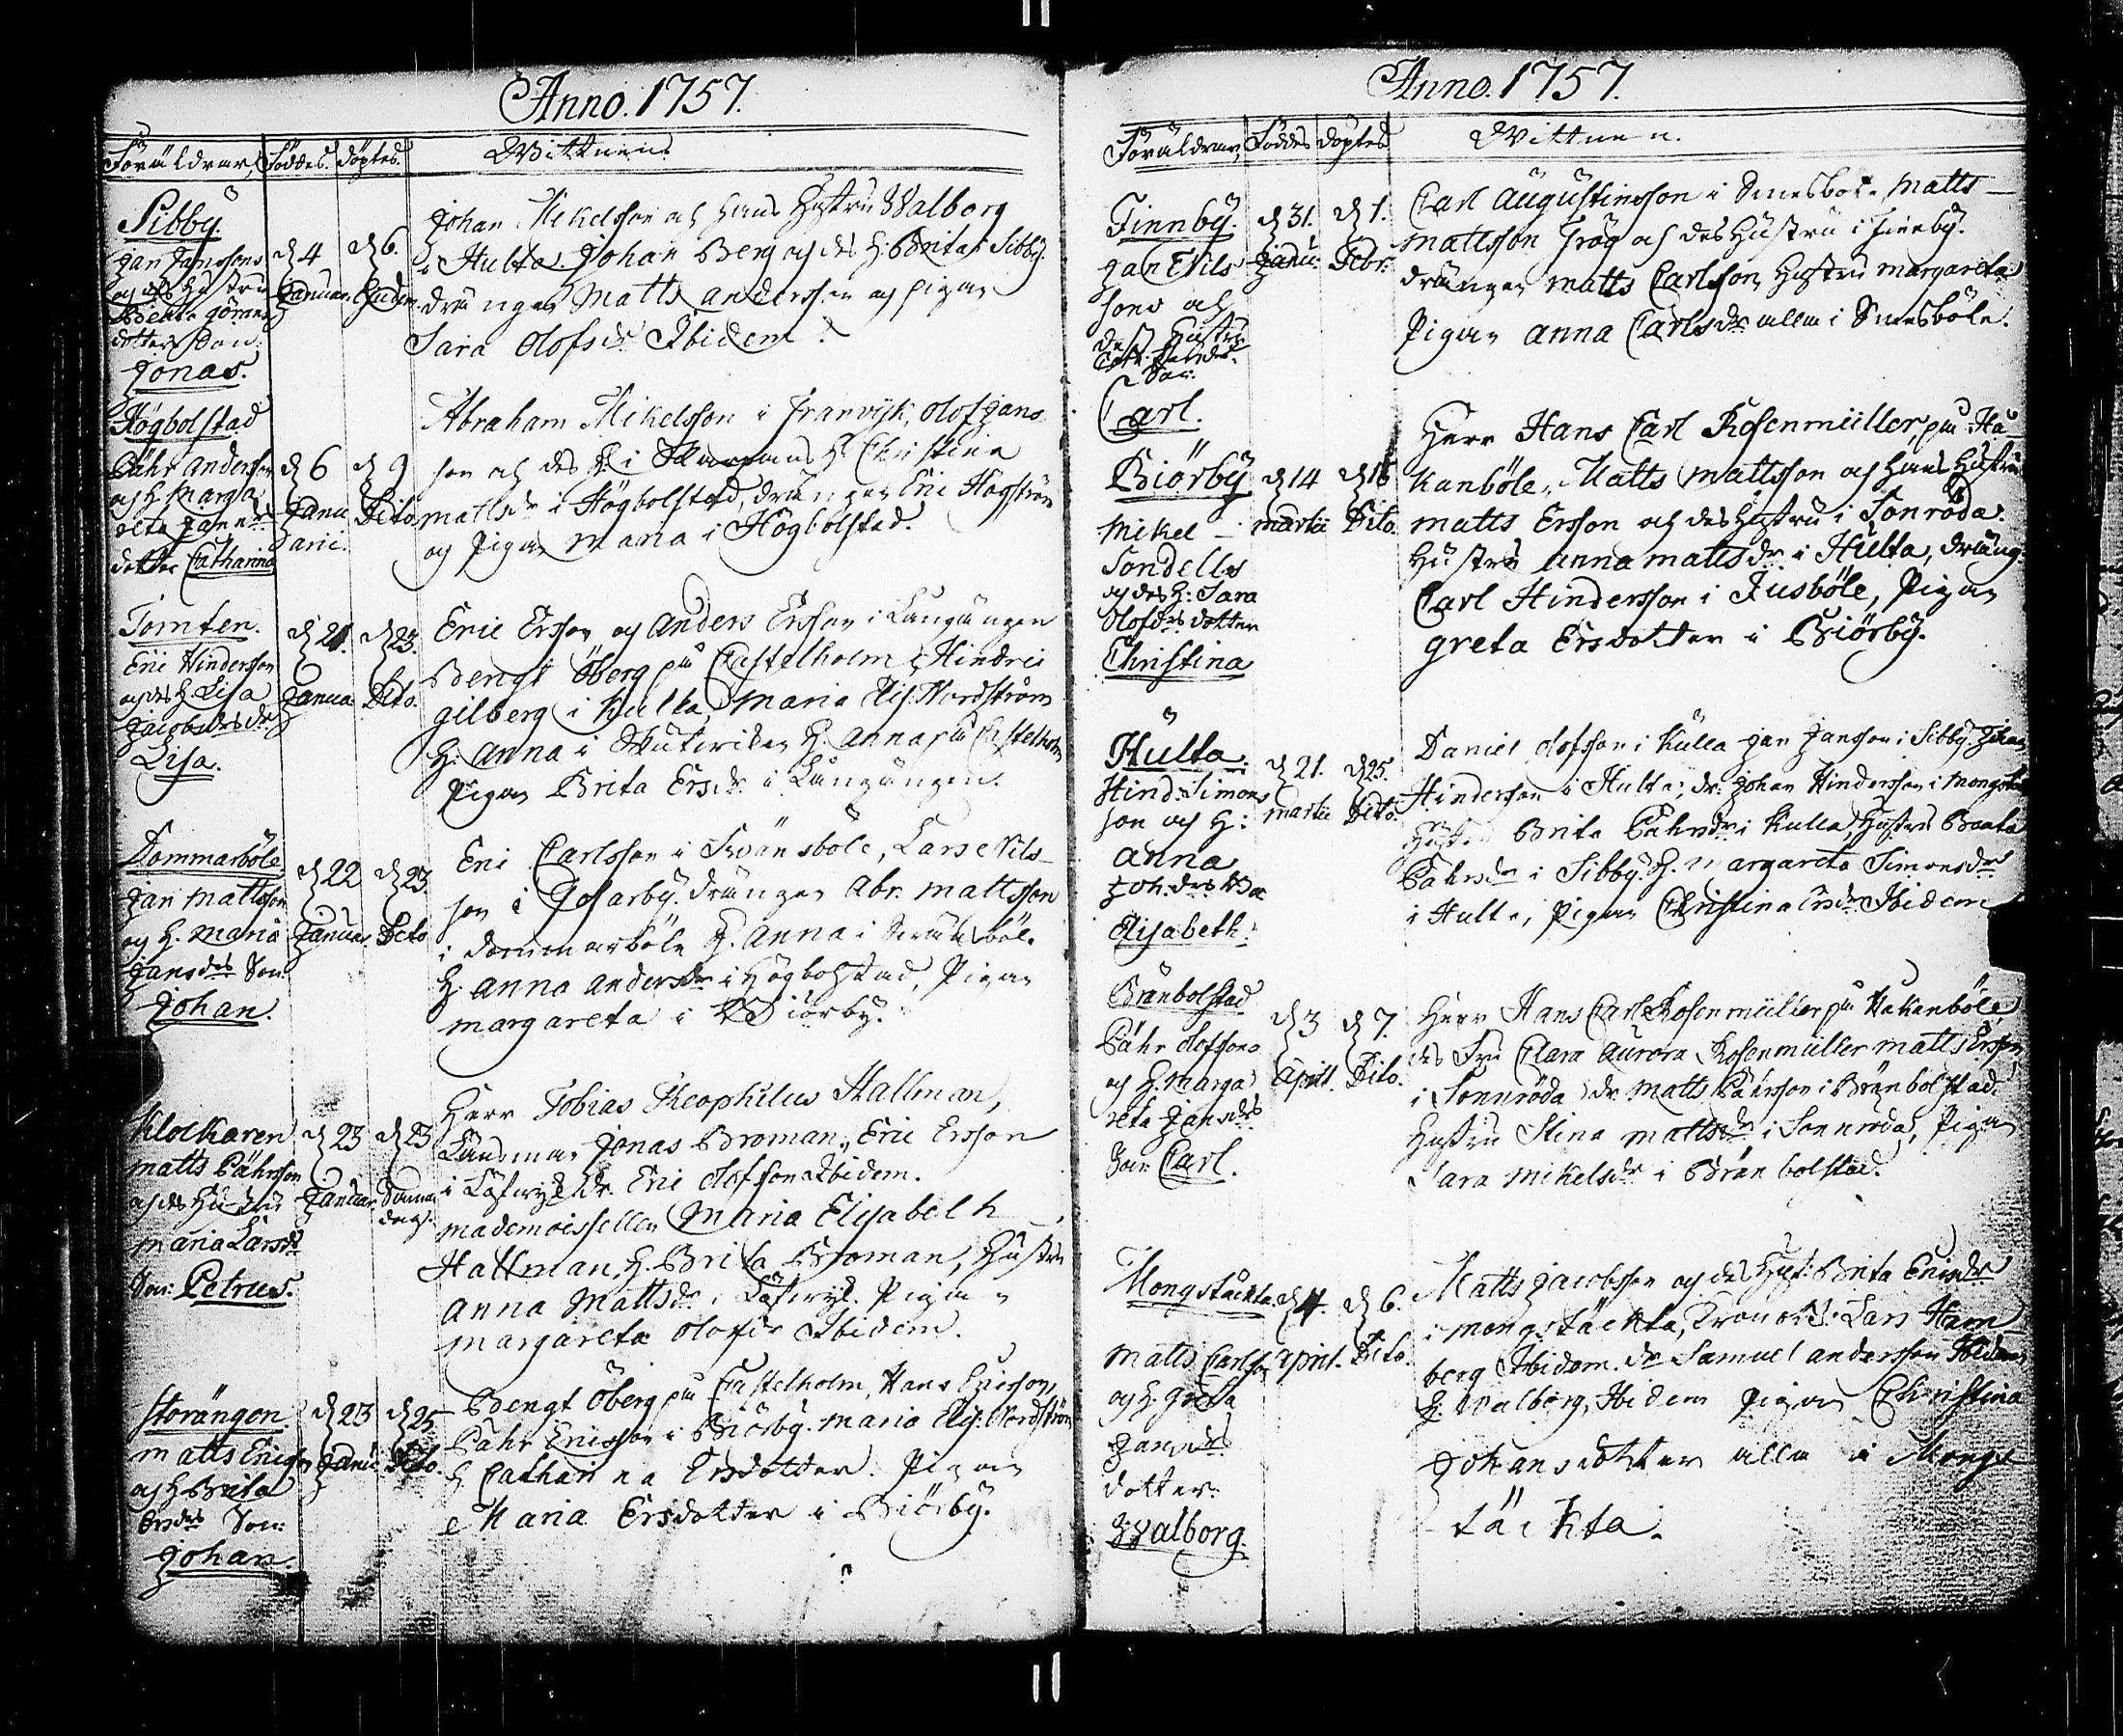 Anno. 1757.
Föräldrar, Föddes. Döptes. Wittnen.
Sibby.
Jan Janssons
och des Hustru
Beata Görans
dotters Son:
Jonas.
d 4
Januar.
d 6.
Ejusdem
Johan Mikelsson och hans Hustru Walborg
i Hulta. Johan Berg och des H: Brita i Sibby.
drängen Matts andersson och pigan
Sara Olofsdr Ibidem.
Högbolstad
Pähr andersson
och H. Marga
reta Jansdes
dotter Catharina
d 6
Janu
arii.
d 9
Dito
Abraham Mikelsson i Tranvijk, Olof Jans
son och des H. i H Christina
mattsdr i Högbolstad, drängen Eric Hagström
och Pigan Maria i Högbolstad.
Tomten.
Eric Hindersson
och des H Lisa
Jacobsdes dr
Lisa.
d 21.
Janua
d 23.
Dito.
Eric Ersson och Anders Ersson i Längängen
Bengt Öberg på Castelholm, Hindric
gilberg i Kulla, Maria Elis: Nordström
H: Anna i H. Anna på Castelholm
Pigan Brita Ersdr i Längängen.
Dommarböle
Jan Mattsson
och H. Maria
Jansdes Son
Johan.
d 22
Januar.
d 23.
Dito
Eric Carlsson i Svänsböle, Lars Nils-
son i Gosarby. drängen Abr. Mattsson
i dommarböle H. Anna i Svänsböle
H. Anna andersdr i Högbolstad, Pigan
margareta i Biörby.
Klockaren
matts Pährsson
och des Hustru
Maria Larsdes
Son: Petrus.
d 23
Januar
d 23
Samma
dag.
Herr Tobias Theophilus Hallman,
Länsman Jonas Broman, Eric Ersson
i Löfwijk dr. Eric Olofsson Ibidem.
mademoisellen Maria Elisabeth
Hallman, H. Brita Broman, Hustru
Anna Mattsdr i Löfwijk. Pigan
margareta Olofsdr Ibidem.
Storängen
matts Ericsson
och H Brita
Ersdes Son:
Johan.
d 23
Janu:
d 25
Dito.
Bengt Öberg på Castelholm, Hans Ericsson,
Pähr Ericsson i Biörby. Maria Elis: Nordström
H Catharina Ersdotter. Pigan
Maria Ersdotter i Biörby.
Anno. 1757.
Föräldrar, Föddes Döptes Wittnen.
Finnby.
Jan Nils
sons och
dess Hustru
Son:
Carl.
d 31.
Janu:
d 1.
Febr:
Carl Augustinsson i Smesböle Matts
mattsson Frög och des Hustru i Finnby.
drängen matts Carlsson, Hustru margareta
Pigan Anna Carlsdr alla i Smesböle.
Biörby
Mikel
Sondells
och des H: Sara
Olofsdes dotter
Christina
d 14
martii
d 16
Dito.
Herr Hans Carl Rosenmüller, på Ha
kanböle, Matts Mattsson och hans Hustru
matts Ersson och des Hustru i Sonröda.
Hustru Anna mattsdr i Hulta, dräng.
Carl Hindersson i Jusböle, Pigan
greta Ersdotter i Biörby.
Hulta.
Hind: Simons
son och H:
Anna
Joh.des
Elisabeth.
d 21.
martii
d 25.
Dito.
Daniel Olofsson i Kulla Jan Jansson i Sibby. Johan
Hindersson i Hulta, dr: Johan Hindersson i Mongstäkta
Hust. Brita Pährsdr i Kulla, Hustru Beata
Pährsdr i Sibby. H. margareta Simonsdr
i Hulta, Pigan Christina Ersdr Ibidem
Bränbolstad
Pähr Olofssons
och H. Marga
reta Jansdes
Son Carl.
d 3
April.
d 7.
Dito.
Herr Hans Carl Rosenmüller på Hakanböle,
des Fru Clara Aurora Rosenmüller matts Ersson
i Sonnröda dr Matts Pährsson i Bränbolstad.
Hustru Stina mattsdr i Sonnröda, Pigan
Sara Mikelsdr i Bränbolstad.
Mongstäckta
Matts Carlsson
och H. Greta
Jansdes
dotter:
Walborg.
d 4.
April.
d 6.
Dito.
Matts Jacobsson och des Hust: Brita Ericsdr
i Mongstäckta, Lars Ham
berg Ibidem. dr Samuel andersson Ibidem
H: Walborg, Ibidem Pigan Christina
Johansdotter alla i Mongs
täckta.